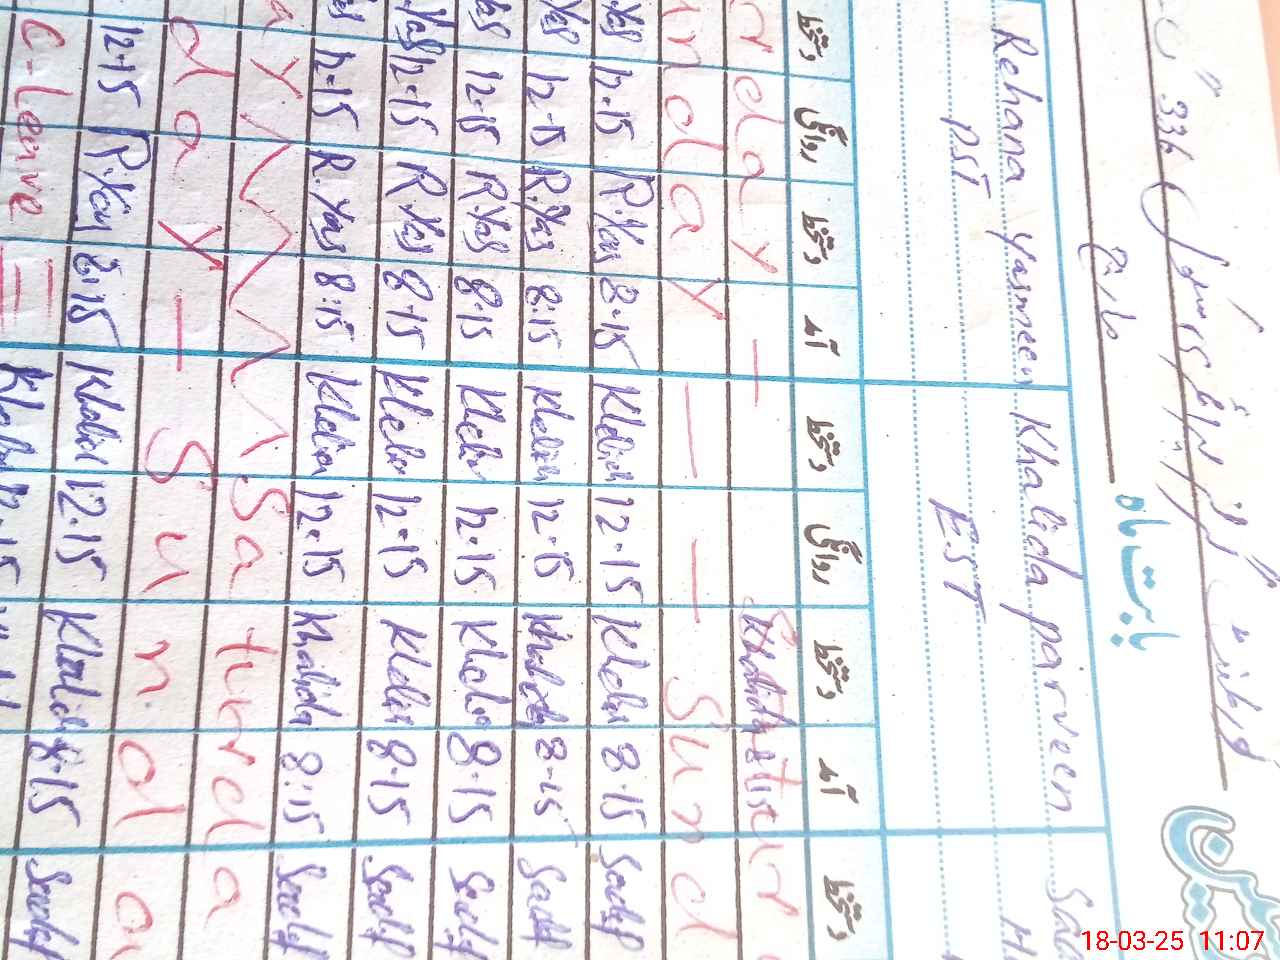 گورنمنٹ گرلز پرائمری سکول 336
بابت ماہ مارچ
Rehana Yasmeen Khalida parveen
PST EST
دستخط آمد دستخط روانگی دستخط آمد دستخط روانگی دستخط
r d a y — Khalida Satur
u n d a y — — — S u n d
Yas 12.15 R.Yas 8.15 Khalida 12.15 Khalida 8.15 Sadaf
Yas 12.15 R.Yas 8:15 Khalida 12.15 Khalida 8.15 Sadaf
Yas 12.15 R.Yas 8.15 Khalida 12.15 Khalida 8.15 Sadaf
Yas 12.15 R.Yas 8.15 Khalida 12.15 Khalida 8.15 Sadaf
Yas 12.15 R.Yas 8:15 Khalida 12.15 Khalida 8:15 Sadaf
a y Sa t u r d a
d a y — S u n d a
12.15 R.Yas 8.15 Khalid 12.15 Khalida 8.15 Sadaf
C-Leave 12.15
18-03-25 11:07